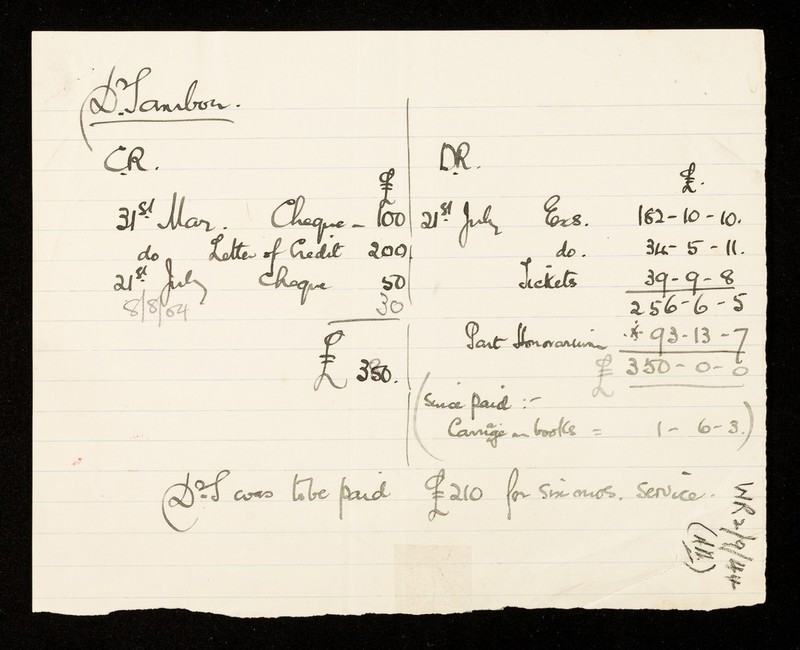 Dr. Sambon.
CR.
£
31st Mar. Cheque - 100
do Letter of Credit 200
21st July Cheque 50
8/8/04 30
£ 350.
DR.
£.
21st July Exs. 182-10-10.
do. 34-5-11.
Tickets 39-9-8
256-6-5
Part Honorarium * 93-13-7
£ 350-0-0
(Since paid :-
Carriage on books = 1-6-3.)
(Dr. S was to be paid £210 for six mos. service.
WR2/9/44